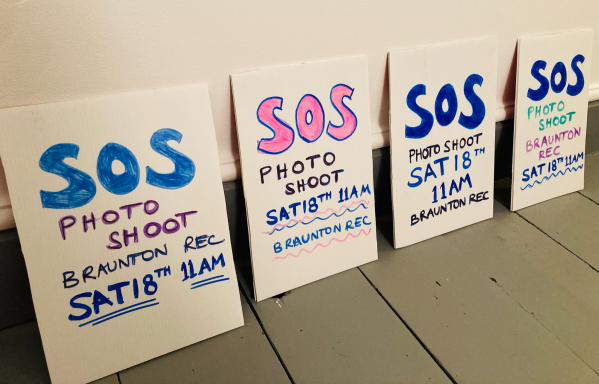 SOS
PHOTO
SHOOT
BRAUNTON REC
SAT 18TH 11AM
SOS
PHOTO
SHOOT
SAT 18TH 11AM
BRAUNTON REC
SOS
PHOTO SHOOT
SAT 18TH
11AM
BRAUNTON REC
SOS
PHOTO
SHOOT
BRAUNTON
REC
SAT 18TH 11AM